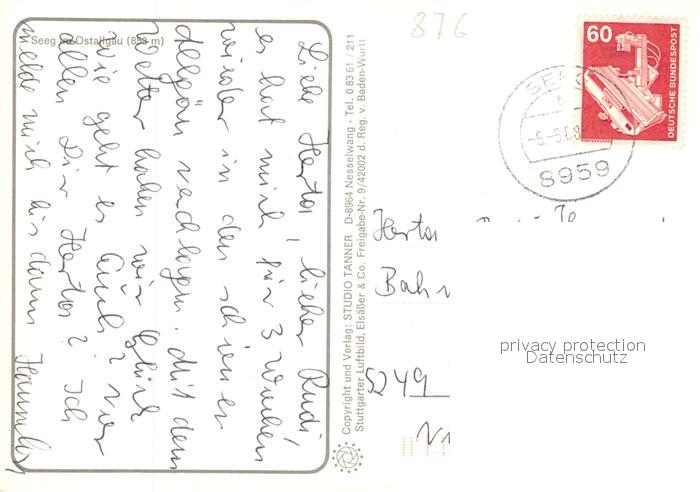 Seeg im Ostallgäu (853 m)
Liebe Herta, lieber Rudi
es hat mich für 3 Wochen
wieder in den schönen
Allgäu verschlagen. Mit dem
Wetter haben wir Glück
Wie geht es Euch? vor
allem Dir Herta? Ich
melde mich bis dann
Copyright und Verlag: STUDIO TANNER D-8964 Nesselwang - Tel. 0 83 61 / 211
Stuttgarter Luftbild, Elsäßer & Co. Freigabe-Nr. 9/42002 d. Reg. v. Baden-Württ
876
60
DEUTSCHE BUNDESPOST
SEEG
8959
Herta
Bahn
5249
privacy protection
Datenschutz